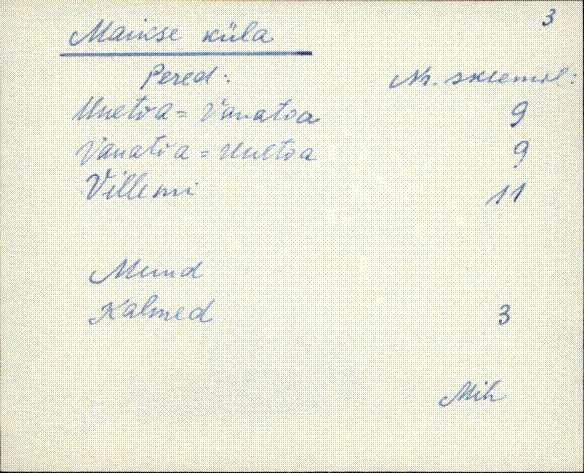 3
Mäikse küla
Pered: Nr. skeemil:
Uuetoa = Vanatoa 9
Vanatoa = Uuetoa 9
Villemi 11
Muud
Kalmed 3
Mih